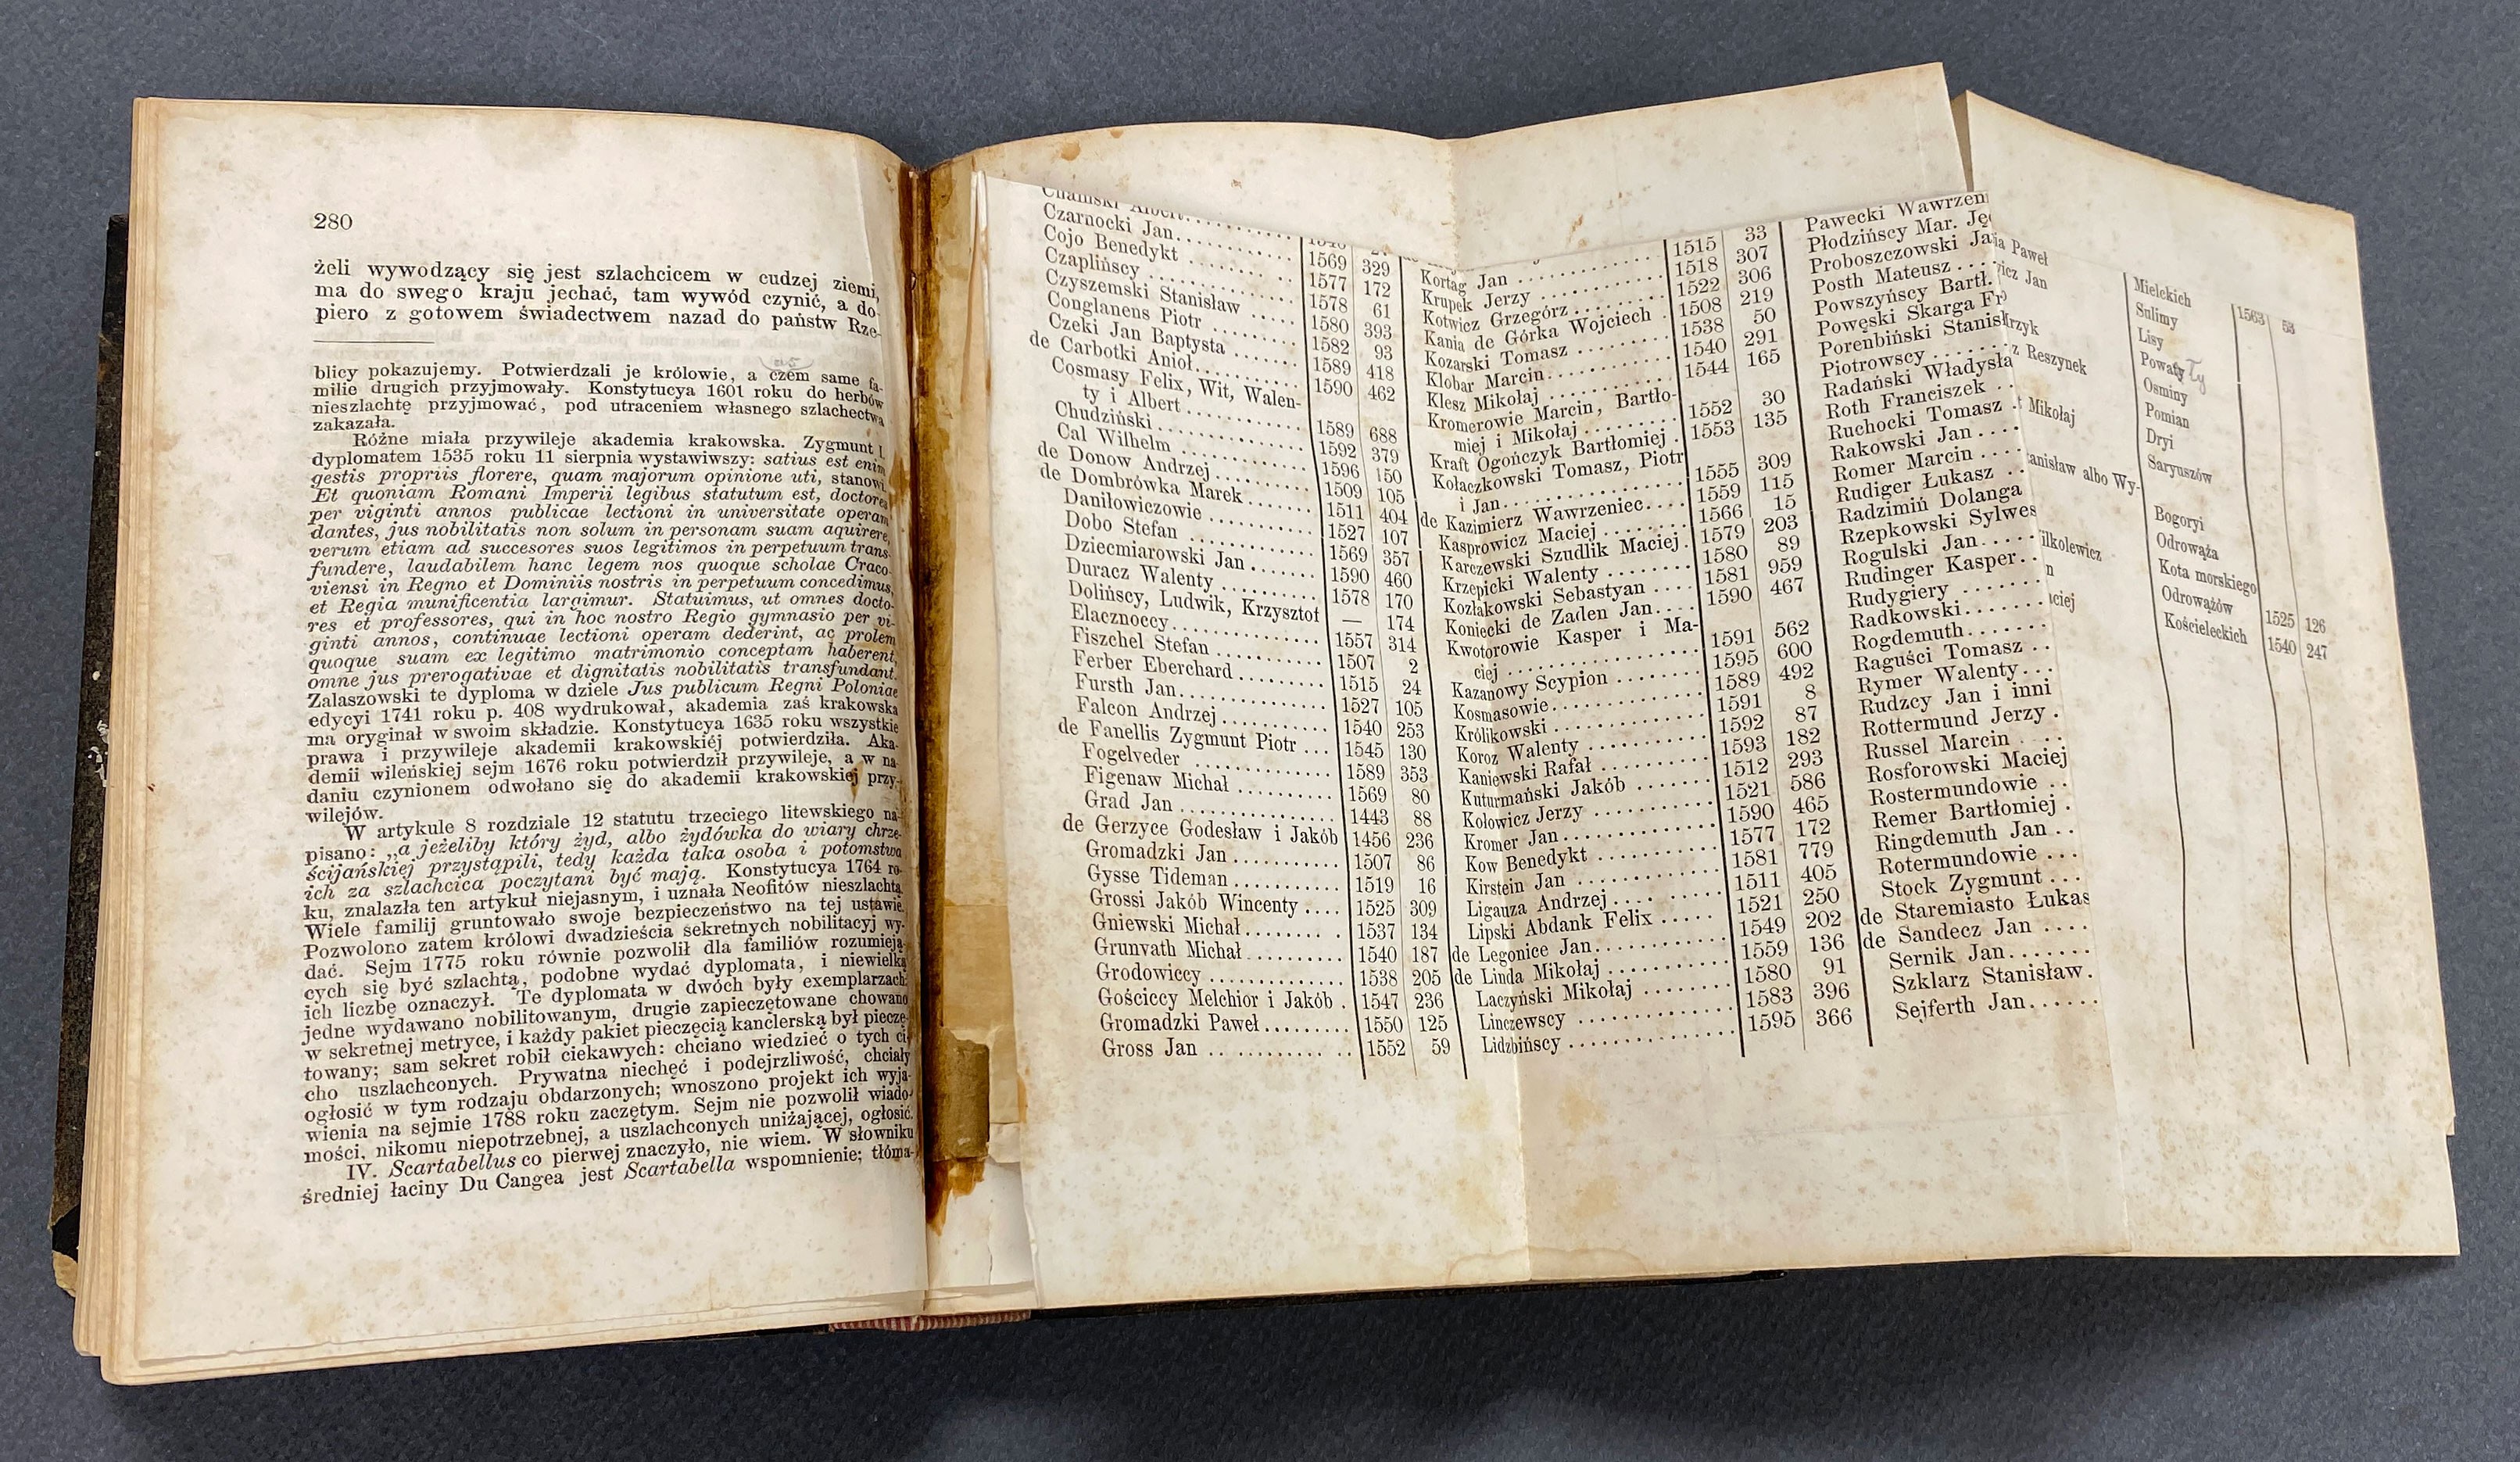 280
żeli wywodzący się jest szlachcicem w cudzej ziemi,
ma do swego kraju jechać, tam wywód czynić, a do-
piero z gotowem świadectwem nazad do państw Rze-
blicy pokazujemy. Potwierdzali je królowie, a czem same fa-
milie drugich przyjmowały. Konstytucya 1601 roku do herbów
nieszlachtę przyjmować, pod utraceniem własnego szlachectwa
zakazała.
Różne miała przywileje akademia krakowska. Zygmunt I.
dyplomatem 1535 roku 11 sierpnia wystawiwszy: satius est enim
gestis propriis florere, quam majorum opinione uti, stanowi.
Et quoniam Romani Imperii legibus statutum est, doctores
per viginti annos publicae lectioni in universitate operam
dantes, jus nobilitatis non solum in personam suam aquirere,
verum etiam ad succesores suos legitimos in perpetuum trans-
fundere, laudabilem hanc legem nos quoque scholae Craco-
viensi in Regno et Dominiis nostris in perpetuum concedimus,
et Regia munificentia largimur. Statuimus, ut omnes docto-
res et professores, qui in hoc nostro Regio gymnasio per vi-
ginti annos, continuae lectioni operam dederint, ac prolem
quoque suam ex legitimo matrimonio conceptam haberent,
omne jus prerogativae et dignitatis nobilitatis transfundant.
Zalaszowski te dyploma w dziele Jus publicum Regni Poloniae
edycyi 1741 roku p. 408 wydrukował, akademia zaś krakowska
ma oryginał w swoim składzie. Konstytucya 1635 roku wszystkie
prawa i przywileje akademii krakowskiéj potwierdziła. Aka-
demii wileńskiej sejm 1676 roku potwierdził przywileje, a w na-
daniu czynionem odwołano się do akademii krakowskiej przy-
wilejów.
W artykule 8 rozdziale 12 statutu trzeciego litewskiego na-
pisano: „a jeżeliby który żyd, albo żydówka do wiary chrze-
ścijańskiej przystąpili, tedy każda taka osoba i potomstwa
ich za szlachcica poczytani być mają. Konstytucya 1764 ro-
ku, znalazła ten artykuł niejasnym, i uznała Neofitów nieszlachtą.
Wiele familij gruntowało swoje bezpieczeństwo na tej ustawie.
Pozwolono zatem królowi dwadzieścia sekretnych nobilitacyj wy-
dać. Sejm 1775 roku równie pozwolił dla familiów rozumieją-
cych się być szlachtą, podobne wydać dyplomata, i niewielką
ich liczbę oznaczył. Te dyplomata w dwóch były exemplarzach:
jedne wydawano nobilitowanym, drugie zapieczętowane chowano
w sekretnej metryce, i każdy pakiet pieczęcią kanclerską był pieczę-
towany; sam sekret robił ciekawych: chciano wiedzieć o tych ci-
cho uszlachconych. Prywatna niechęć i podejrzliwość, chciały
ogłosić w tym rodzaju obdarzonych; wnoszono projekt ich wyja-
wienia na sejmie 1788 roku zaczętym. Sejm nie pozwolił wiado-
mości, nikomu niepotrzebnej, a uszlachconych uniżającej, ogłosić.
IV. Scartabellus co pierwej znaczyło, nie wiem. W słowniku
średniej łaciny Du Cangea jest Scartabella wspomnienie; tłóma-
Chamski Albert
Czarnocki Jan 1569 329
Cojo Benedykt 1577 172
Czaplińscy 1578 61
Czyszemski Stanisław 1580 393
Conglanens Piotr 1582 93
Czeki Jan Baptysta 1589 418
de Carbotki Anioł 1590 462
Cosmasy Felix, Wit, Walen-
ty i Albert 1589 688
Chudziński 1592 379
Cal Wilhelm 1596 150
de Donow Andrzej 1509 105
de Dombrówka Marek 1511 404
Daniłowiczowie 1527 107
Dobo Stefan 1569 357
Dziecmiarowski Jan 1590 460
Duracz Walenty 1578 170
Dolińscy, Ludwik, Krzysztof — 174
Elacznoccy 1557 314
Fiszchel Stefan 1507 2
Ferber Eberchard 1515 24
Fursth Jan 1527 105
Falcon Andrzej 1540 253
de Fanellis Zygmunt Piotr 1545 130
Fogelveder 1589 353
Figenaw Michał 1569 80
Grad Jan 1443 88
de Gerzyce Godesław i Jakób 1456 236
Gromadzki Jan 1507 86
Gysse Tideman 1519 16
Grossi Jakób Wincenty 1525 309
Gniewski Michał 1537 134
Grunvath Michał 1540 187
Grodowiccy 1538 205
Gościccy Melchior i Jakób 1547 236
Gromadzki Paweł 1550 125
Gross Jan 1552 59
Kortag Jan 1515 33
Krupek Jerzy 1518 307
Kotwicz Grzegórz 1522 306
Kania de Górka Wojciech 1508 219
Kozarski Tomasz 1538 50
Klobar Marcin 1540 291
Klesz Mikołaj 1544 165
Kromerowie Marcin, Bartło-
miej i Mikołaj 1552 30
Kraft Ogończyk Bartłomiej 1553 135
Kołaczkowski Tomasz, Piotr
i Jan 1555 309
de Kazimierz Wawrzeniec 1559 115
Kasprowicz Maciej 1566 15
Karczewski Szudlik Maciej 1579 203
Krzepicki Walenty 1580 89
Kozłakowski Sebastyan 1581 959
Koniecki de Zaden Jan 1590 467
Kwotorowie Kasper i Ma-
ciej 1591 562
Kazanowy Scypion 1595 600
Kosmasowie 1589 492
Królikowski 1591 8
Koroz Walenty 1592 87
Kaniewski Rafał 1593 182
Kuturmański Jakób 1512 293
Kołowicz Jerzy 1521 586
Kromer Jan 1590 465
Kow Benedykt 1577 172
Kirstein Jan 1581 779
Ligauza Andrzej 1511 405
Lipski Abdank Felix 1521 250
de Legonice Jan 1549 202
de Linda Mikołaj 1559 136
Laczyński Mikołaj 1580 91
Linczewscy 1583 396
Lidzbińscy 1595 366
Pawecki Wawrzen
Płodzińscy Mar. Ję
Proboszczowski Ja
Posth Mateusz
Powszyńscy Bartł.
Powęski Skarga Fr
Porenbiński Stanisł
Piotrowscy
Radański Władysła
Roth Franciszek
Ruchocki Tomasz
Rakowski Jan
Romer Marcin
Rudiger Łukasz
Radzimiń Dolanga
Rzepkowski Sylwes
Rogulski Jan
Rudinger Kasper
Rudygiery
Radkowski
Rogdemuth
Raguści Tomasz
Rymer Walenty
Rudzcy Jan i inni
Rottermund Jerzy
Russel Marcin
Rosforowski Maciej
Rostermundowie
Remer Bartłomiej
Ringdemuth Jan
Rotermundowie
Stock Zygmunt
de Staremiasto Łukas
de Sandecz Jan
Sernik Jan
Szklarz Stanisław
Sejferth Jan
ia Paweł
icz Jan
rzyk
z Reszynek
t Mikołaj
anisław albo Wy-
ilkolewicz
n
ciej
Mielckich 1563 53
Sulimy
Lisy
Powały ty
Osminy
Pomian
Dryi
Saryuszów
Bogoryi
Odrowąża
Kota morskiego
Odrowążów 1525 126
Kościeleckich 1540 247